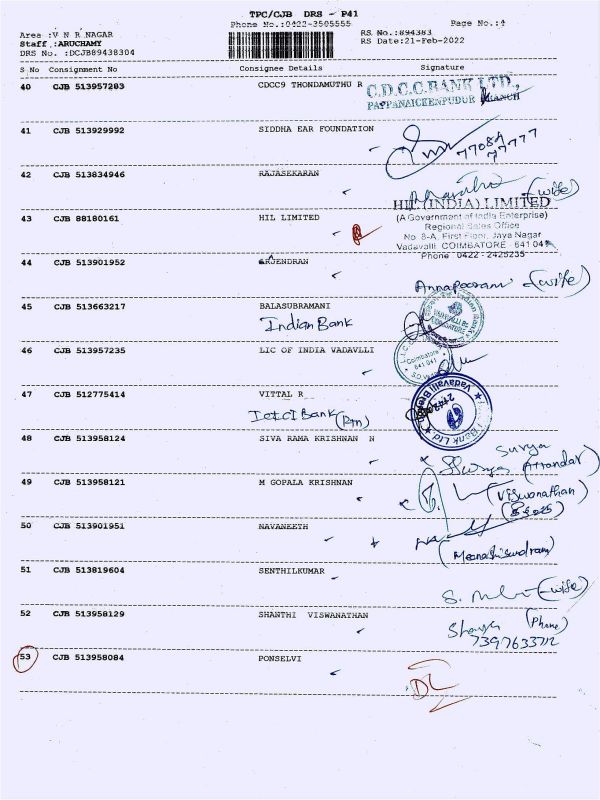 TPC/CJB DRS - P41
Phone No.:0422-3505555
Page No.:4
Area :V N R NAGAR
RS No.:894383
Staff :ARUCHAMY
RS Date:21-Feb-2022
DRS No. :DCJB89438304
S No Consignment No Consignee Details Signature
40 CJB 513957283 CDCC9 THONDAMUTHU R
C.D.C.C.BANK LTD.,
PAPPANAICKENPUDUR BRANCH
41 CJB 513929992 SIDDHA EAR FOUNDATION
77084
77777
42 CJB 513834946 RAJASEKARAN
(wife)
43 CJB 88180161 HIL LIMITED
HIL (INDIA) LIMITED
(A Government of India Enterprise)
Regional Sales Office
No. 8-A, First Floor, Jaya Nagar
Vadavalli, COIMBATORE - 641 041
Phone : 0422 - 2425235
44 CJB 513901952 ARJENDRAN
Annapooram (wife)
45 CJB 513663217 BALASUBRAMANI
Indian Bank
46 CJB 513957235 LIC OF INDIA VADAVLLI
Coimbatore
641 041
47 CJB 512775414 VITTAL R
Icici Bank (Rtn)
Vadavalli
Bank Ltd
48 CJB 513958124 SIVA RAMA KRISHNAN N
Surya
49 CJB 513958121 M GOPALA KRISHNAN
(Viswanathan)
50 CJB 513901951 NAVANEETH
51 CJB 513819604 SENTHILKUMAR
(wife)
52 CJB 513958129 SHANTHI VISWANATHAN
(Phone)
7397633712
53 CJB 513958084 PONSELVI
DL